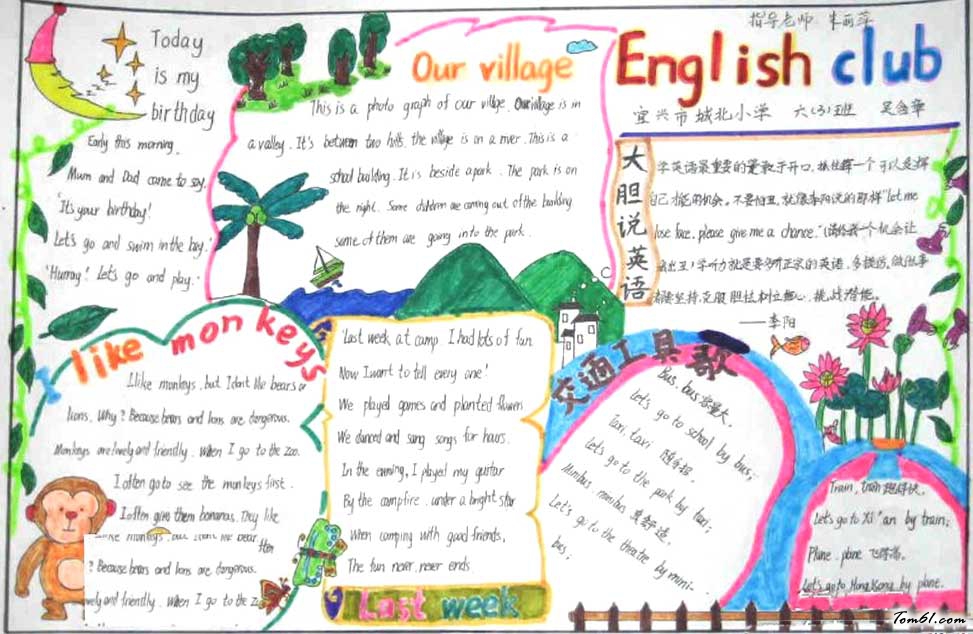 Today
is my
birthday
Early this morning.
Mum and Dad came to say.
"It's your birthday!
Let's go and swim in the bay.'
'Hurray! Let's go and play.'
Our village
This is a photo graph of our village. Our village is in
a valley. It's between two hills. the village is on a river. This is a
school building. It is beside a park. The park is on
the right. Some children are coming out of the building
some of them are going into the park.
指导老师 朱丽萍
English club
宜兴市城北小学 六(3)班
大胆说英语
学英语最重要的是敢于开口,抓住每一个可以这样
自己才能的机会,不要怕丑,就像李阳说的那样"Let me
lose face. please give me a chance."(请给我一个机会让
我出丑)学听力就是要多听正宗的英语,多模仿,做任事
坚持,克服胆怯树立信心,挑战潜能。
——李阳
I like monkeys
I like monkeys, but I don't like bears or
lions. Why? Because bears and lions are dangerous.
Monkeys are lively and friendly. When I go to the zoo.
I often go to see the monkeys first.
I often give them bananas. They like
like monkeys, but I don't like bear
? Because bears and lions are dangerous.
vely and friendly. When I go to the zo
Last week at camp. I had lots of fun
Now I want to tell every one!
We played games and planted flowers
We danced and sang songs for hours.
In the evening, I played my guitar
By the campfire. under a bright star
When camping with good friends,
The fun never, never ends
Last week
交通工具歌
Bus, bus 容量大,
Let's go to school by bus;
Taxi, taxi 随手招,
Let's go to the park by taxi;
Minibus, minibus 真舒适,
Let's go to the theatre by mini-
bus;
Train, train 跑得快,
Let's go to Xi'an by train;
Plane, plane 飞得高,
Let's go to Hong Kong by plane.
Tom61.com